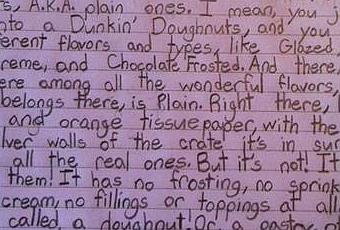 s, A.K.A. plain ones. I mean, you j
nto a Dunkin' Doughnuts, and you
erent flavors and types, like Glazed,
reme, and Chocolate Frosted. And there,
ere among all the wonderful flavors,
belongs there, is Plain. Right there, l
and orange tissue paper, with the
lver walls of the crate it's in sur
all the real ones. But it's not! It
them! It has no frosting, no sprink
cream, no fillings or toppings at all
called a doughnut! Or a pastry of